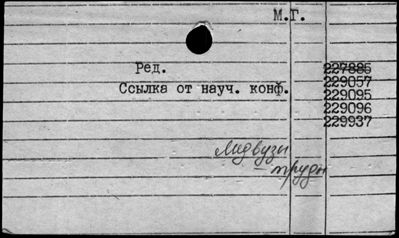 М.Г.
Ред. 227885
Ссылка от науч. конф. 229057
229095
229096
229937
Медвузы
– труды